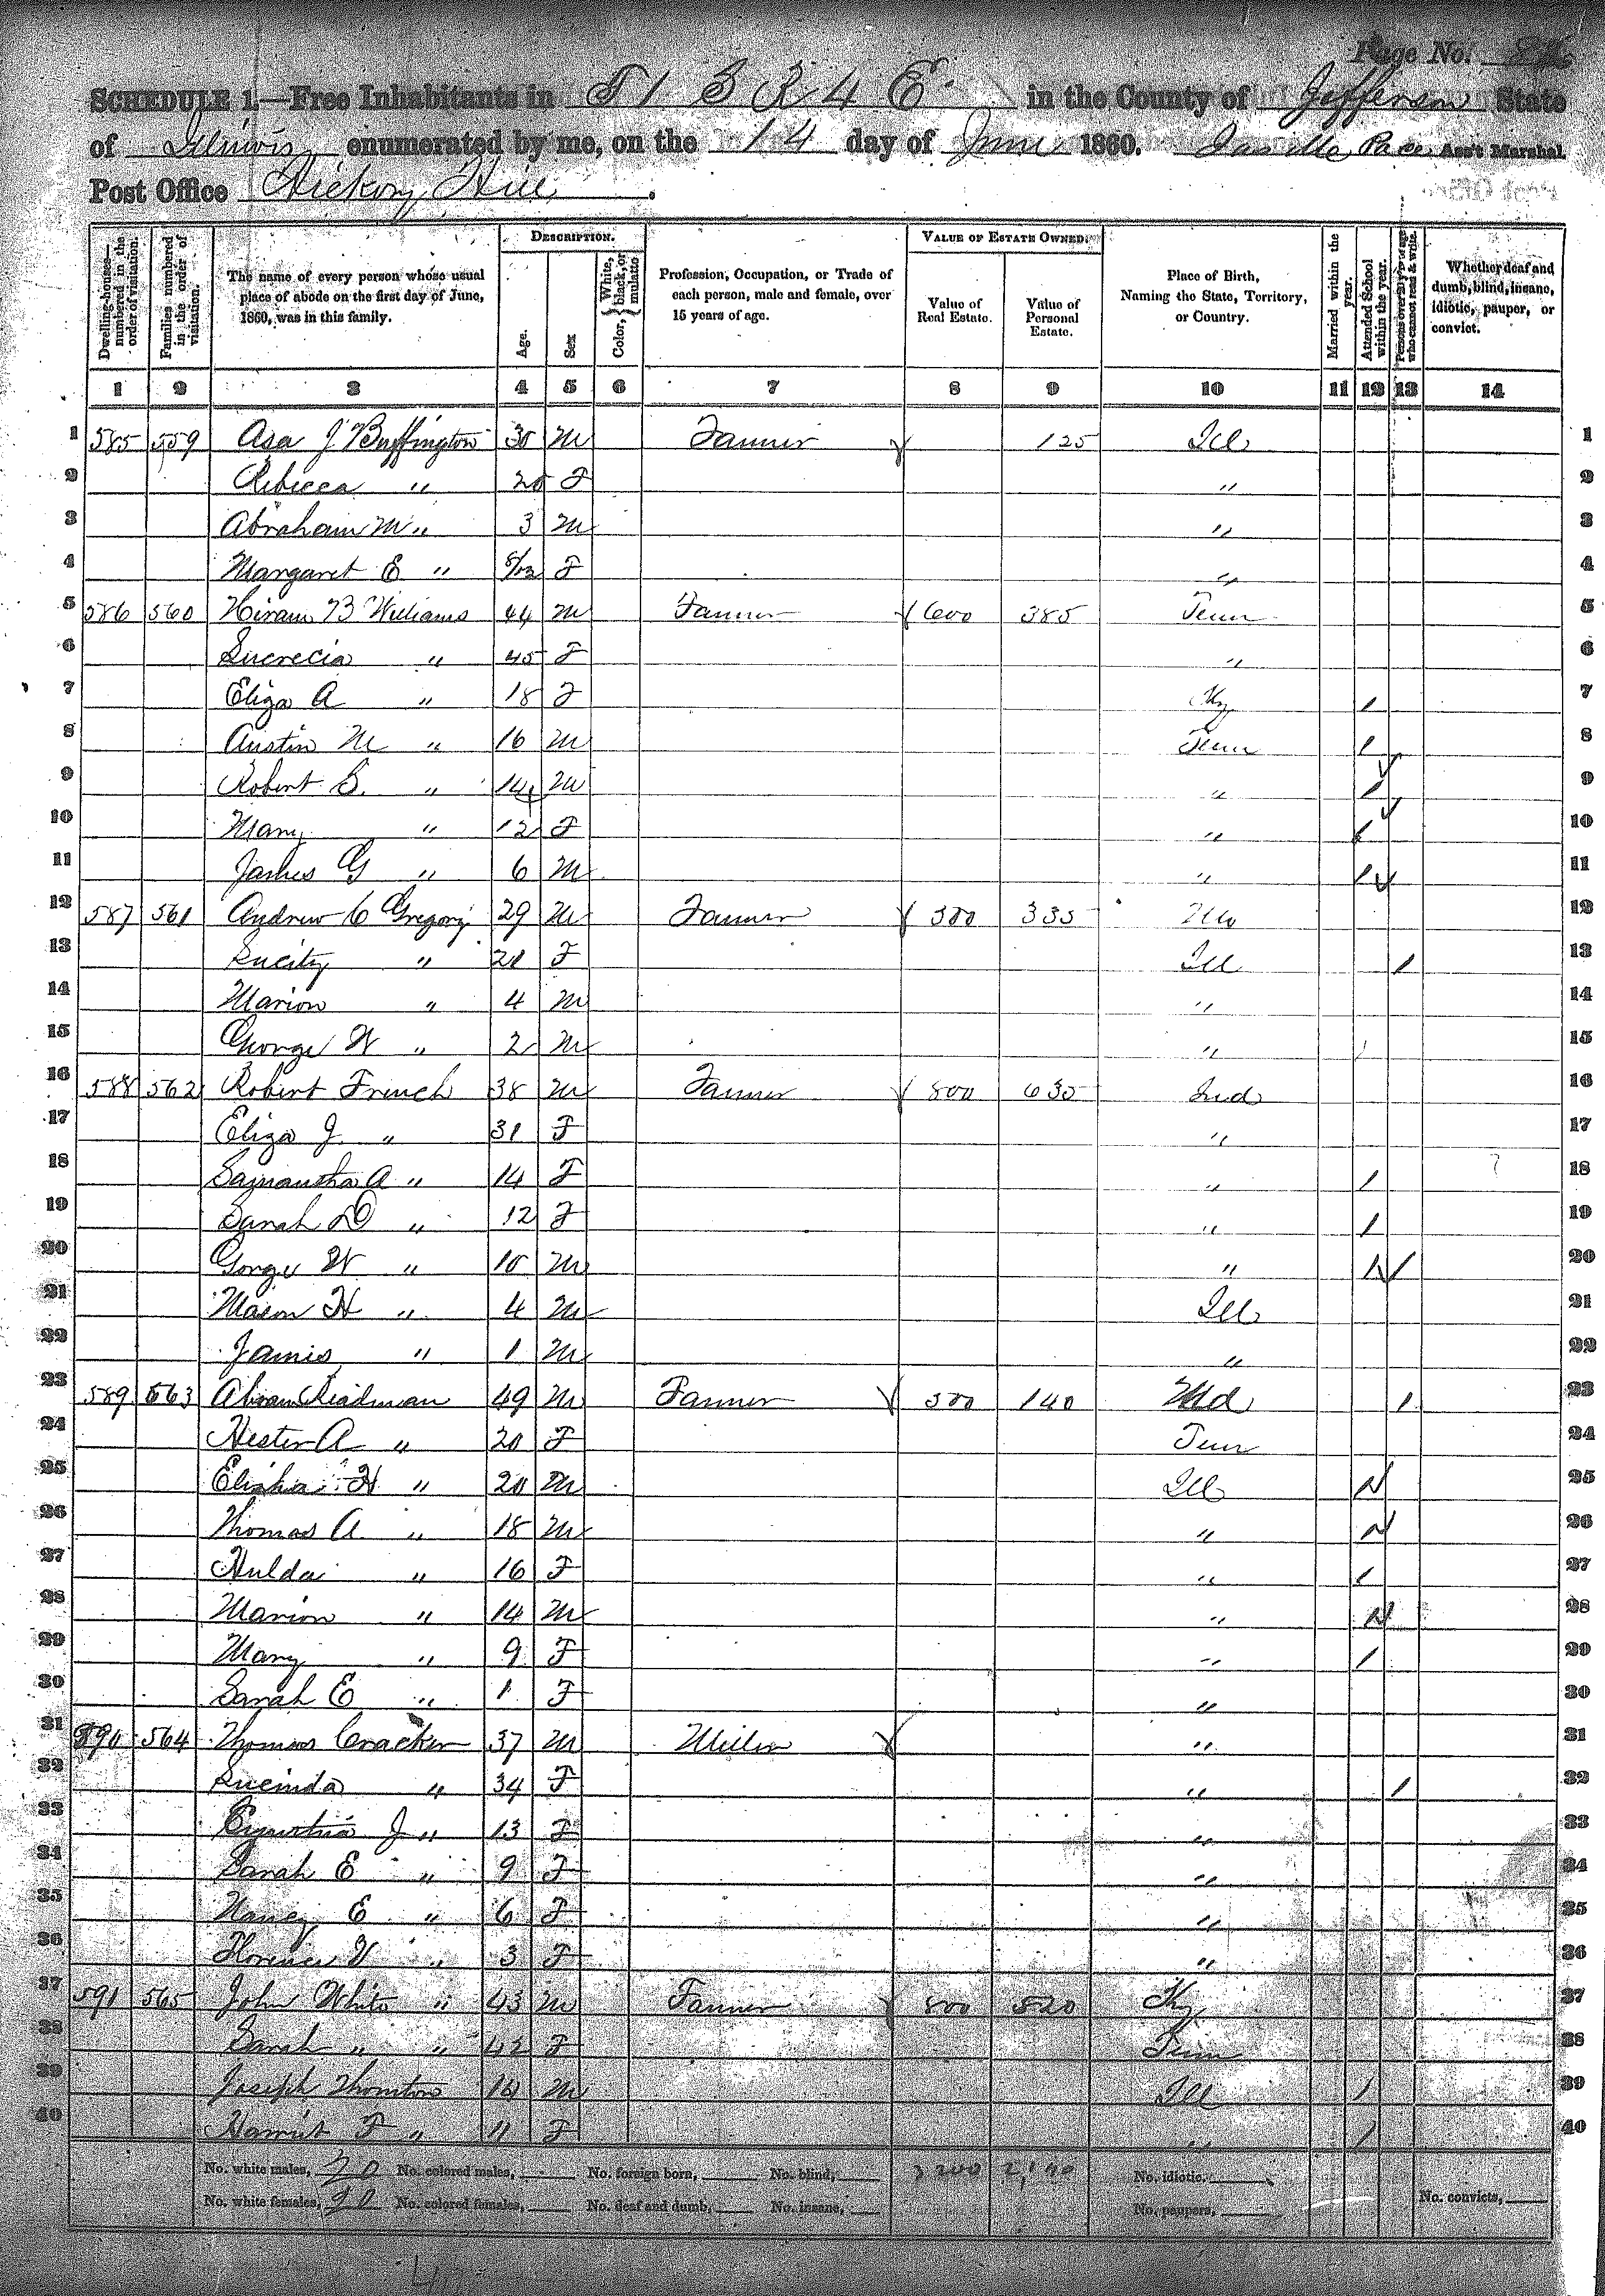 Page No.
SCHEDULE 1.—Free Inhabitants in T 1 S R 4 E in the County of Jefferson State
of Illinois enumerated by me, on the 14 day of June 1860. Pace Ass't Marshal.
Post Office Hickory Hill.
Dwelling-houses—numbered in the order of visitation.
Families numbered in the order of visitation.
The name of every person whose usual place of abode on the first day of June, 1860, was in this family.
DESCRIPTION.
Age.
Sex
Color, { White, black, or mulatto.
Profession, Occupation, or Trade of each person, male and female, over 15 years of age.
VALUE OF ESTATE OWNED.
Value of Real Estate.
Value of Personal Estate.
Place of Birth, Naming the State, Territory, or Country.
Married within the year.
Attended School within the year.
Persons over 20 y'rs of age who cannot read & write.
Whether deaf and dumb, blind, insane, idiotic, pauper, or convict.
1 2 3 4 5 6 7 8 9 10 11 12 13 14
1 585 559 Asa J Buffington 30 M Farmer 125 Ill 1
2 Rebecca " 20 F " 2
3 Abraham M " 3 M " 3
4 Margaret E " 8/12 F " 4
5 586 560 Hiram B Williams 44 M Farmer 600 385 Tenn 5
6 Lucrecia " 45 F " 6
7 Eliza A " 18 F Ky / 7
8 Austin M " 16 M Tenn / 8
9 Robert S. " 14 M " / 9
10 Mary " 12 F " / 10
11 James G " 6 M " / 11
12 587 561 Andrew C Gregory 29 M Farmer 300 335 12
13 Lucity " 21 F Ill / 13
14 Marion " 4 M " 14
15 George W " 2 M " 15
16 588 562 Robert French 38 M Farmer 800 635 Ind 16
17 Eliza J. " 31 F " 17
18 Samantha A " 14 F " / 18
19 Sarah D " 12 F " / 19
20 Gorge W " 10 M " / / 20
21 Mason H " 4 M Ill 21
22 James " 1 M " 22
23 589 563 Abram 49 M Farmer 300 140 Md / 23
24 Hester A " 20 F Tenn 24
25 Elisha H " 20 M Ill / 25
26 Thomas A " 18 M " / 26
27 Hulda " 16 F " / 27
28 Marion " 14 M " / 28
29 Mary " 9 F " / 29
30 Sarah E " 1 F " 30
31 590 564 Thomas Cracker 37 M Miller " 31
32 Lucinda " 34 F " / 32
33 J " 13 F " 33
34 Sarah E " 9 F " 34
35 Nancy E " 6 F " 35
36 Florence V " 3 F " 36
37 591 565 John White " 43 M Farmer 800 520 Ky 37
38 Sarah " " 42 F Tenn 38
39 Joseph Thornton M Ill / 39
40 Harriet F " 11 F " / 40
No. white males, 20 No. colored males, No. foreign born, No. blind, 3200 No. idiotic,
No. white females, 20 No. colored females, No. deaf and dumb, No. insane, No. paupers, No. convicts,